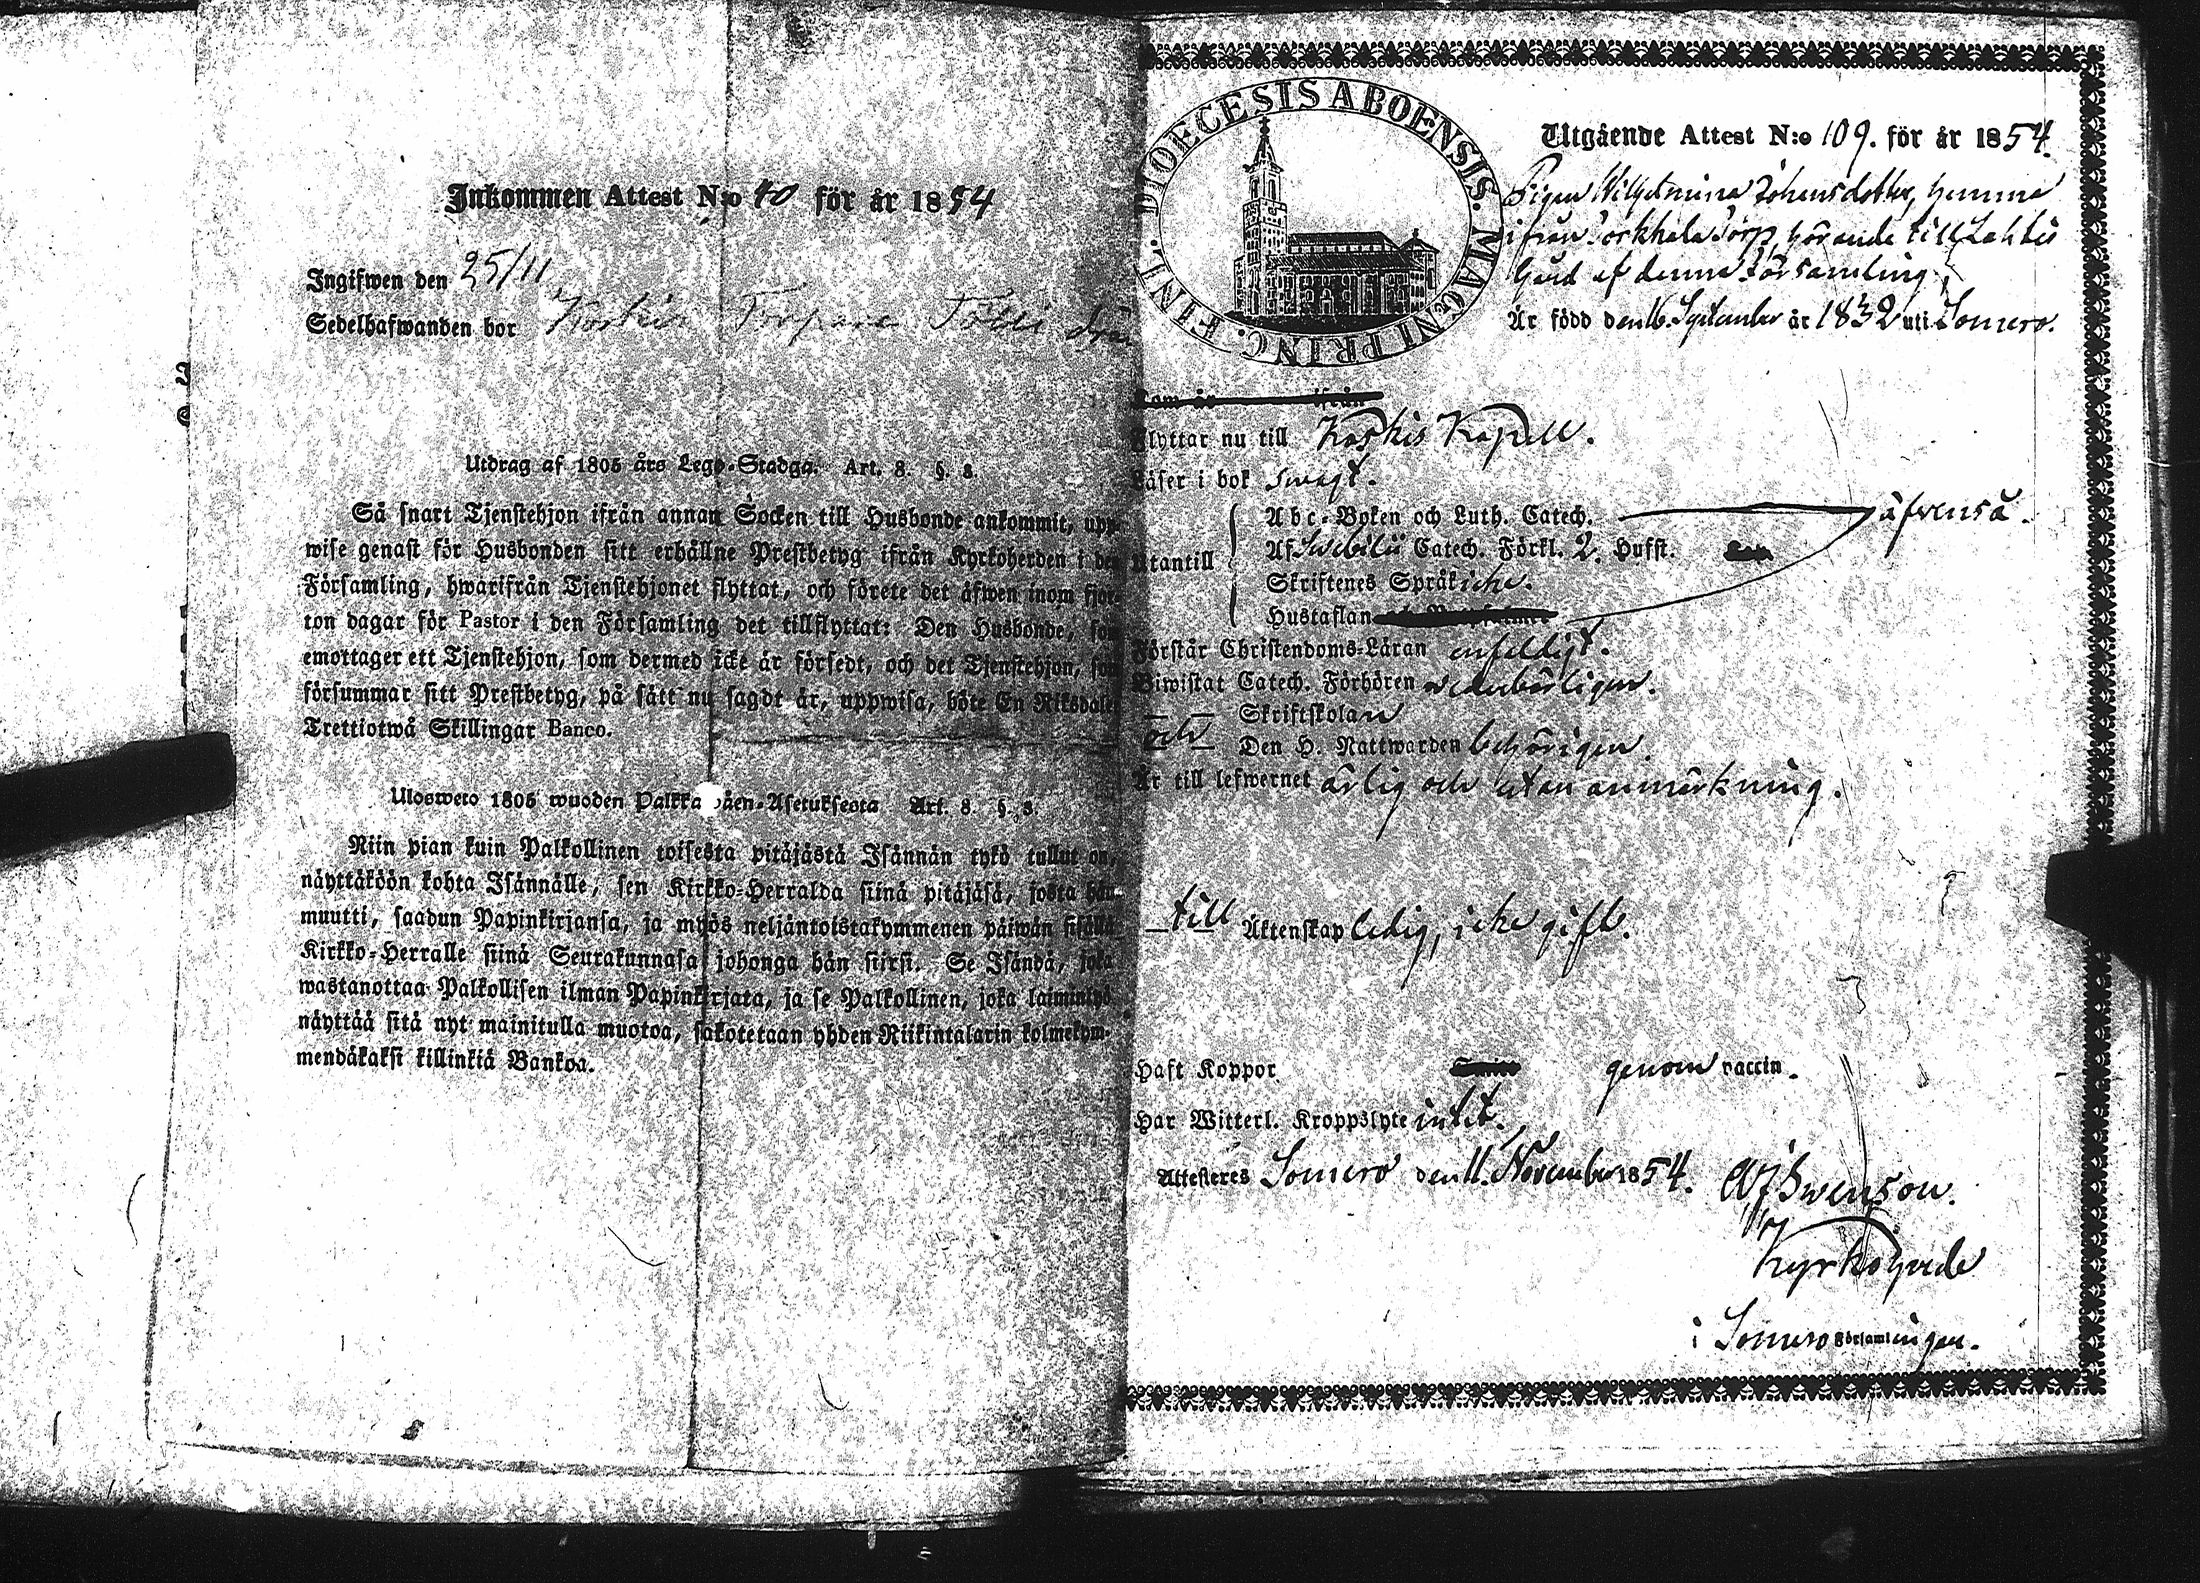 Inkommen Attest N:o 40 för år 1854
Ingifwen den 25/11
Sedelhafwanden bor Koskis
Utdrag af 1805 års Lego-Stadga. Art. 8. §. 8.
Så snart Tjenstehjon ifrån annan Socken till Husbonde ankommit, upp-
wise genast för Husbonden sitt erhållne Prestbetyg ifrån Kyrkoherden i den
Församling, hwarifrån Tjenstehjonet flyttat, och förete det äfwen inom fjor-
ton dagar för Pastor i den Församling det tillflyttat: Den Husbonde, som
emottager ett Tjenstehjon, som dermed icke är försedt, och det Tjenstehjon, som
försummar sitt Prestbetyg, på sätt nu sagdt är, uppwisa, böte En Riksdaler
Trettiotwå Skillingar Banco.
Ulosweto 1805 wuoden Palkka äen-Asetuksesta Art. 8. §. 8.
Niin pian kuin Palkollinen toisesta pitäjästä Isännän tykö tullut on,
näyttäköön kohta Isännälle, sen Kirkko-Herralda siinä pitäjäsä, josta hän
muutti, saadun Papinkirjansa, ja myös neljäntoistakymmenen päiwän sisällä
Kirkko-Herralle siinä Seurakunnasa johonga hän siirsi. Se Isändä, joka
wastanottaa Palkollisen ilman Papinkirjata, ja se Palkollinen, joka laiminlyö
näyttää sitä nyt mainitulla muotoa, sakotetaan yhden Riikintalarin kolmekym-
mendäkaksi killinkiä Bankoa.
DIOECESIS ABOENSIS. MAGNI PRINC. FINL.
Utgående Attest N:o 109. för år 1854.
Pigan Wilhelmina Johansdotter, hemma
ifrån Torkkala Torp, hörande till Lahtis
Gård af denna Församling,
Är född den 16. September år 1832 uti Somero.
Kom år ifrån
Flyttar nu till Koskis Kapell.
Läser i bok swagt.
Utantill
Abc-Boken och Luth. Catech. äfvenså.
Af Swebilii Catech. Förkl. 2 Hufst.
Skriftenes Språk icke.
Hustaflan
Förstår Christendoms-Läran enfeldigt.
Biwistat Catech. Förhören wederbörligen.
— — Skriftskolan
och — Den H. Nattwarden behörigen.
Är till lefwernet ärlig och utan anmärkning.
— till Äktenskap ledig, icke gift.
Haft Koppor genom vaccin.
Har Witterl. Kroppslyte intet.
Attesteres Somero den 11. November 1854.
Swenson.
Kyrkoherde
i Somero Församlingen.